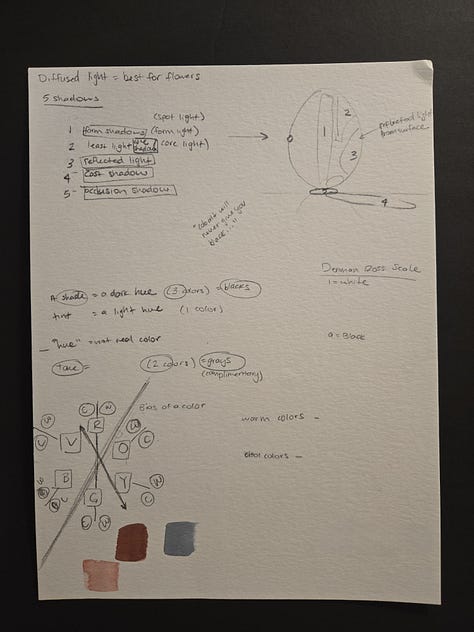 Diffused light = best for flowers
5 shadows
(spot light)
1 form shadows (form light)
2 least light core shadow (core light)
3 reflected light
4 cast shadow
5 - occlusion shadow
1
2
3
5
4
reflected light
from surface
never give you
back..."
Denman Ross Scale
1 = white
9 = Black
A shade = a dark hue (3 colors) = blacks
tint = a light hue (1 color)
"hue" = not real color
(2 colors) = grays
(complimentary)
Bias of a color
warm colors -
cool colors -
C W
R
V
O
C
B
Y
W
C
G
C W